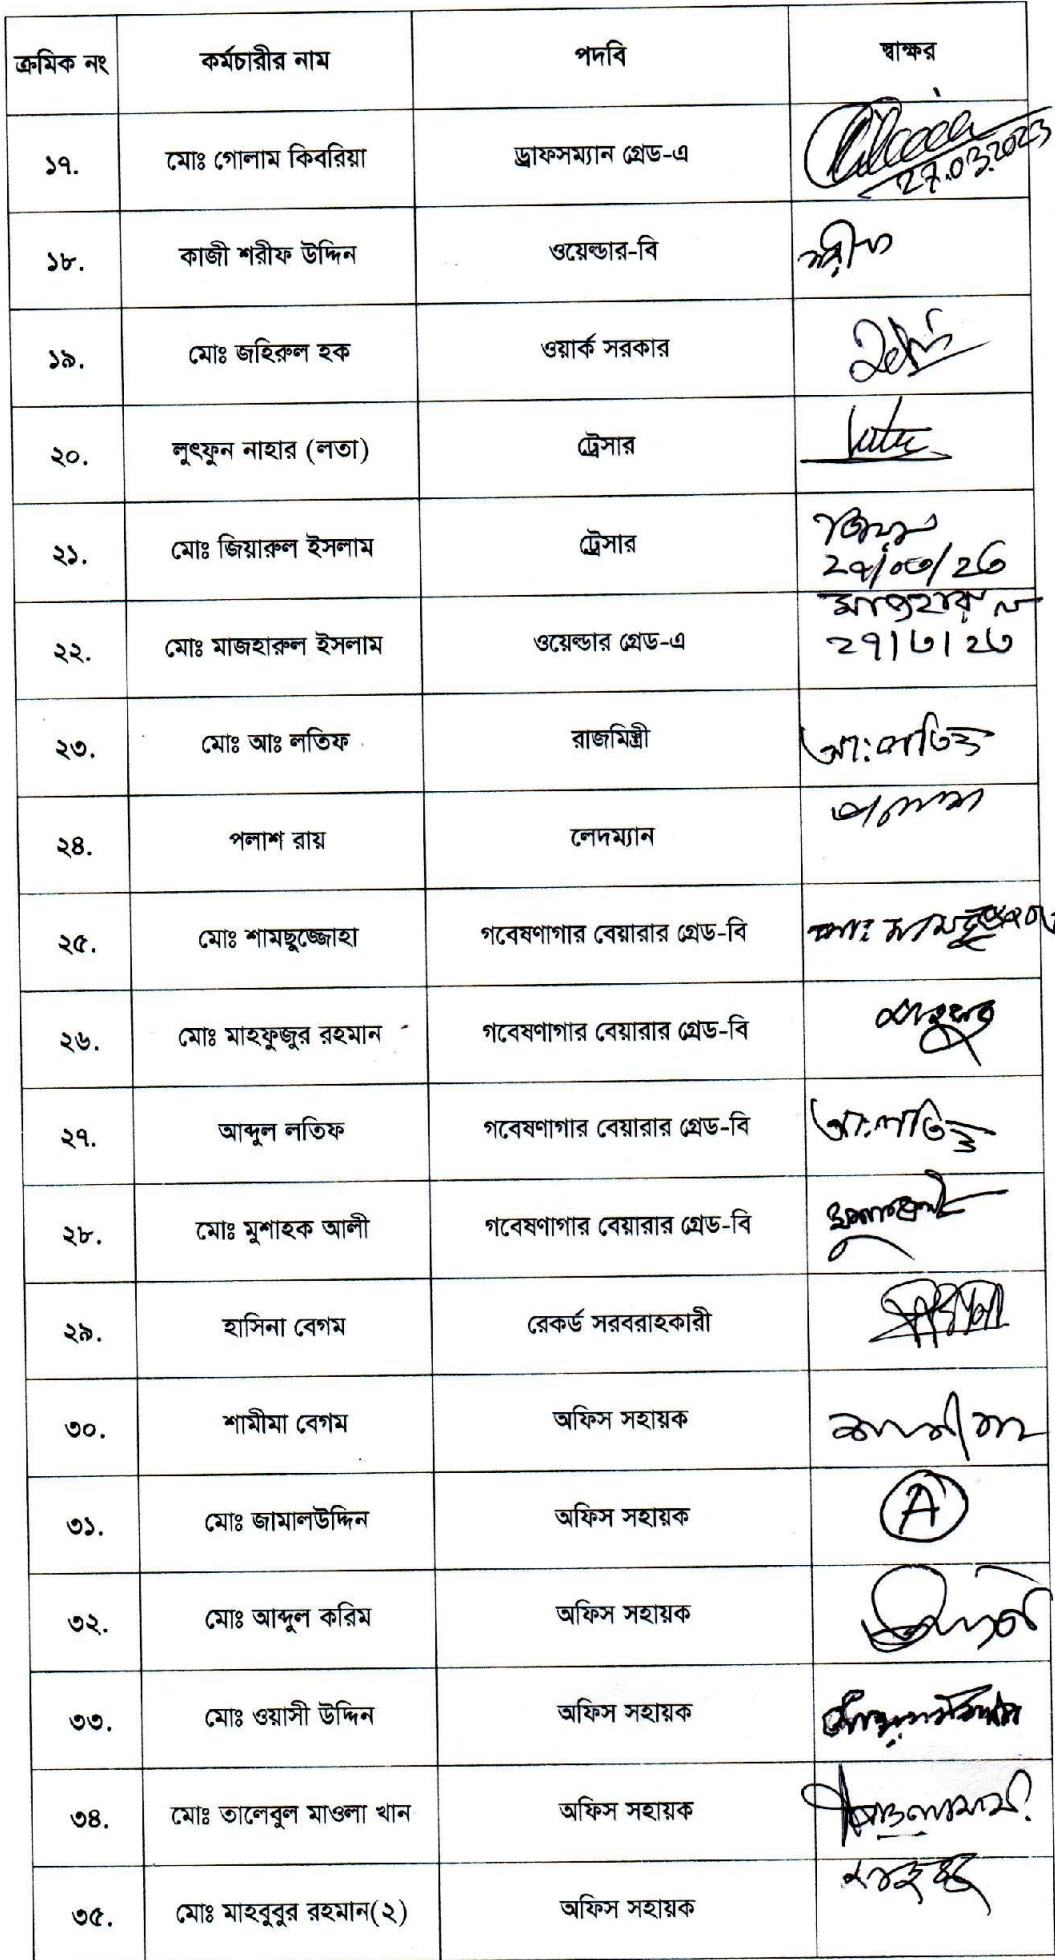 ক্রমিক নং কর্মচারীর নাম পদবি স্বাক্ষর
১৭. মোঃ গোলাম কিবরিয়া ড্রাফসম্যান গ্রেড-এ 27.03.2023
১৮. কাজী শরীফ উদ্দিন ওয়েল্ডার-বি শরীফ
১৯. মোঃ জহিরুল হক ওয়ার্ক সরকার
২০. লুৎফুন নাহার (লতা) ট্রেসার
২১. মোঃ জিয়ারুল ইসলাম ট্রেসার
২৭/০৩/২৩
২২. মোঃ মাজহারুল ইসলাম ওয়েল্ডার গ্রেড-এ মাজহারুল
২৭/৩/২৩
২৩. মোঃ আঃ লতিফ রাজমিস্ত্রী আঃ লতিফ
২৪. পলাশ রায় লেদম্যান পলাশ
২৫. মোঃ শামছুজ্জোহা গবেষণাগার বেয়ারার গ্রেড-বি
২৬. মোঃ মাহফুজুর রহমান গবেষণাগার বেয়ারার গ্রেড-বি
২৭. আব্দুল লতিফ গবেষণাগার বেয়ারার গ্রেড-বি আঃ লতিফ
২৮. মোঃ মুশাহক আলী গবেষণাগার বেয়ারার গ্রেড-বি
২৯. হাসিনা বেগম রেকর্ড সরবরাহকারী
৩০. শামীমা বেগম অফিস সহায়ক শামীমা
৩১. মোঃ জামালউদ্দিন অফিস সহায়ক A
৩২. মোঃ আব্দুল করিম অফিস সহায়ক
৩৩. মোঃ ওয়াসী উদ্দিন অফিস সহায়ক
৩৪. মোঃ তালেবুল মাওলা খান অফিস সহায়ক
৩৫. মোঃ মাহবুবুর রহমান(২) অফিস সহায়ক